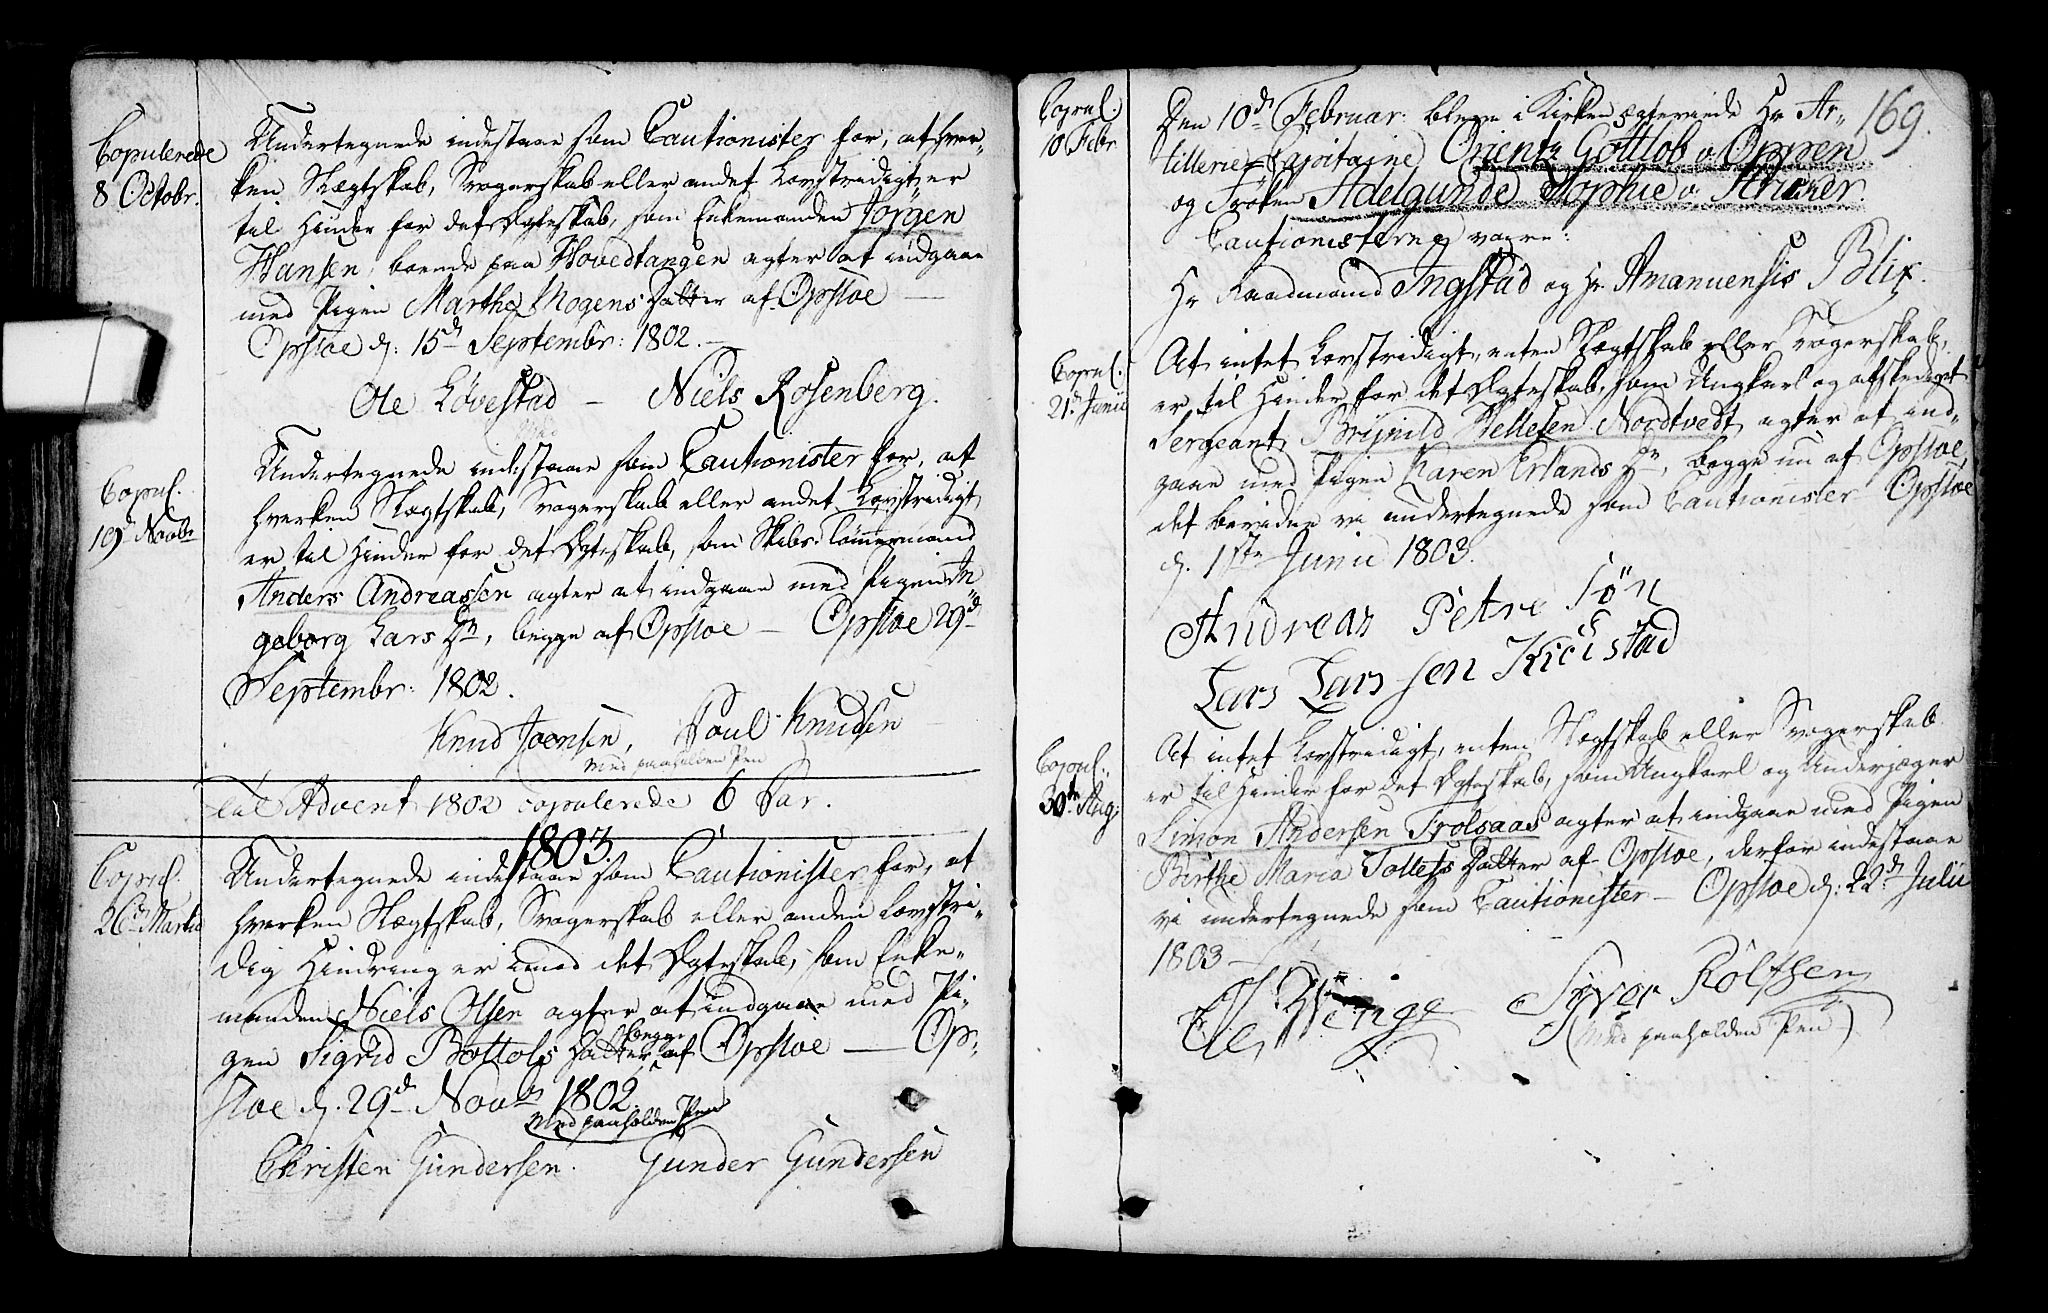 Copulerede
8 Octobr.
Undertegnede indestaae som Cautionister for, at hver-
ken Slægtskab, Svogerskab eller andet Lovstridigt, er
til Hinder for det Ægteskab, som Enkemanden Jørgen
Hansen, boende paa Hovedtangen agter at indgaae
med Pigen Marthe Mogens Datter af Opsloe —
Opsloe d: 15de Septembr: 1802. —
Ole Løvestad — Niels Rosenberg.
Copul.
19de Novbr
Undertegnede indestaae som Cautionister for, at
hverken Slægtskab, Svogerskab eller andet Lovstridigt
er til Hinder for det Ægteskab, som Skibs-Tömmermand
Anders Andreassen agter at indgaae med Pigen In-
geborg Lars Dtr, begge af Opsloe — Opsloe 29de
Septembr: 1802.
Knud Joensen, Poul Knudsen
Med paaholden Pen
Til Advent 1802 copulerede 6 Par.
1803.
Copul.
26de Martii
Undertegnede indestaae som Cautionister for, at
hverken Slægtskab, Svogerskab eller anden Lovstri-
dig Hindring er imod det Ægteskab, som Enke-
manden Niels Olsen agter at indgaae med Pi-
gen Sigrid Bottols Datter begge af Opsloe — Op-
sloe d. 29de Novbr 1802.
Med paaholden Pen
Christen Gundersen. Gunder Gundersen
169.
Copul.
10 Febr
Den 10de Februar: bleve i Kirken ægteviede Hr Ar-
tillerie-Capitaine Orientz Gottlob v. Oppen
og Frøken Adelgunde Sophie v:
Cautionisterne vare:
Hr Raadmand Ingstad og Hr Amanuensis Blix.
Copul.
21de Junii
At intet Lovstridigt, enten Slægtskab eller Svogerskab,
er til Hinder for det Ægteskab, som Ungkarl og afskediget
Sergeant Brijnild Hellesen Nordtvedt agter at ind-
gaae med Pigen Karen Erlands Dtr, begge nu af Opsloe,
det bevidne vi undertegnede som Cautionister — Opsloe
d. 1ste Junii 1803.
Andreas Petre Sön
Lars Larssen
Copul.
30te Aug:
At intet Lovstridigt, enten Slægtskab eller Svogerskab
er til Hinder for det Ægteskab, som Ungkarl og Underjæger
Simon Andersen Trolsaas agter at indgaae med Pigen
Birthe Maria Tollefs Datter af Opsloe, derfor indestaae
vi undertegnede som Cautionister — Opsloe d: 22de Julii
1803 —
Ole Wenge Syver Rolfsen
(Med paaholden Pen)